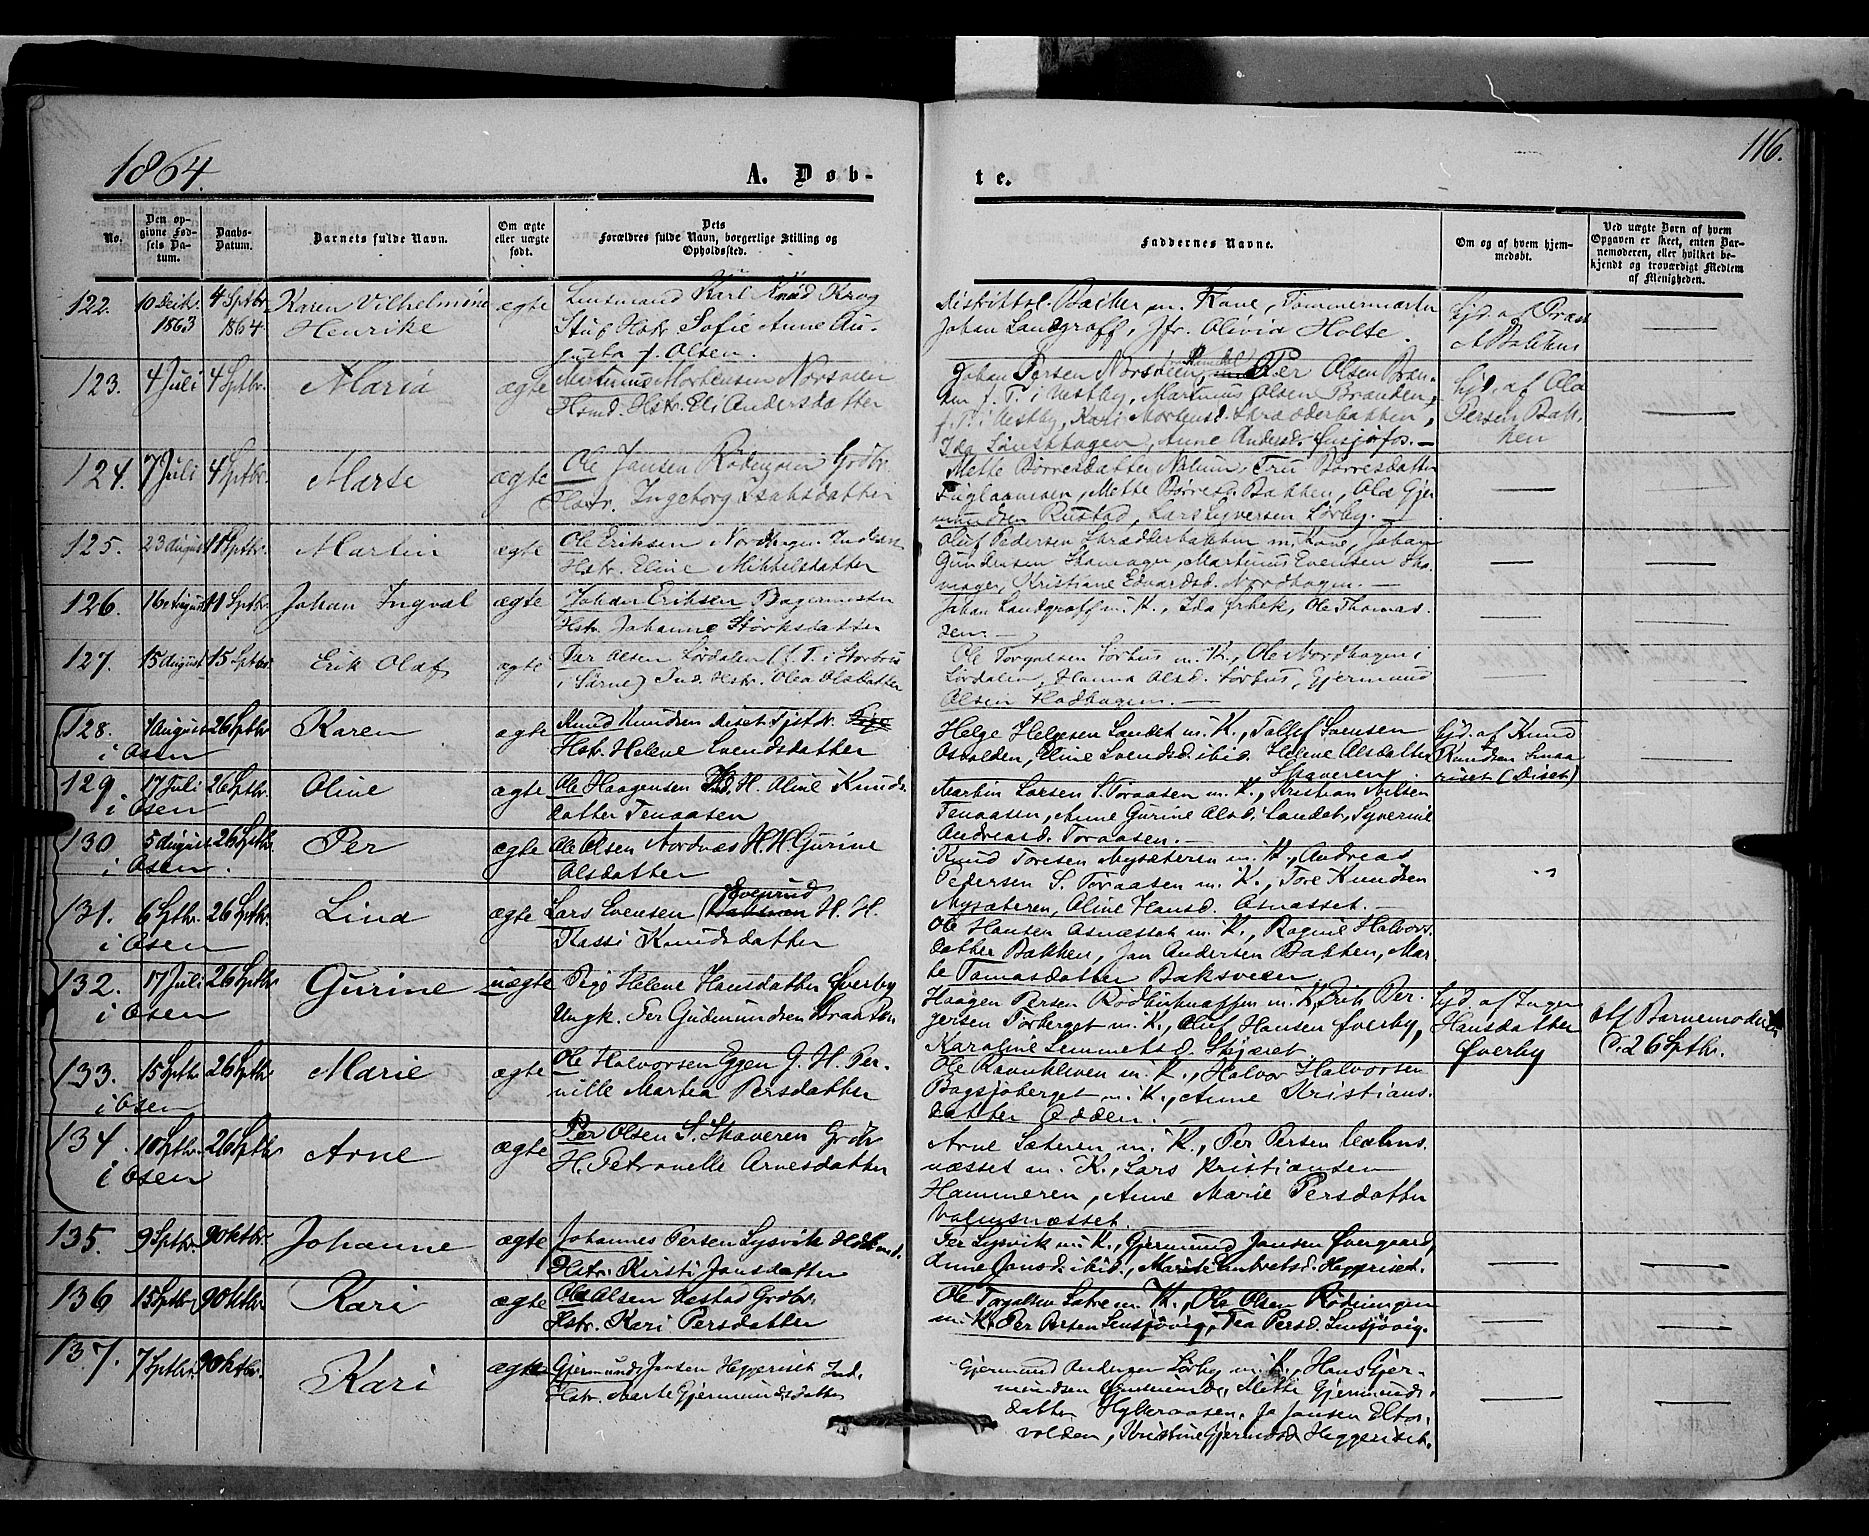 1864.
A. Døb-
te.
116.
No.
Den op-
givne Fød-
sels Da-
tum.
Daabs-
Datum.
Barnets fulde Navn.
Om ægte
eller uægte
født.
Dets
Forældres fulde Navn, borgerlige Stilling og
Opholdssted.
Faddernes Navne.
Om og af hvem hjem-
medøbt.
Ved uægte Børn af hvem
Opgaven er skeet, enten Bar-
nemoderen, eller hvilket be-
kjendt og troværdigt Medlem
af Menigheden.
122.
1863
4 Sptbr.
1864.
Karen Vilhelmine
Henrike
ægte
Lensmand Karl Knud Krog
Stup Hstr. Sofie Anne Au-
gusta f. Olsen.
m. Kone, Tømmermester
Johan Landgraff, Jfr. Olivia Holte.
hjd. af Præst
A Bakkus
123.
4 Juli
4 Sptbr.
Maria
ægte
Martinus Mortensen Norsveen
Hsmd. Hstr. Eli Andersdatter
Johan Persen Norsveen, Per Olsen Bran-
den f. T. i Vestby, Martinus Olsen Branden,
f. T. i Vestby, Kari Mortensd. Skrædderbakken,
Ida Lønskhagen, Anne Andersd. Ensjøfos.
hjd. af Ola
Persen Bak-
ken
124.
7 Juli
4 Sptbr.
Marte
ægte
Ole Jansen Rødningen Grdbr.
Hstr. Ingeborg Isaksdatter
Mette Børresdatter Nelum, Tru Børresdatter
Fuglaamoen, Mette Børresd. Bakken, Ola Gjer-
mundsen Rustad, Lars Syversen Lørby.
125.
23 August
11 Sptbr.
Martin
ægte
Ole Eriksen Nordhagen
Hstr. Eline Mikkelsdatter
Oluf Pedersen Skrædderbakken m. Kone, Johan
Gundersen Skamager, Martinus Evensen Ska-
mager, Kristiane Edvardsd. Nordhagen.
126.
16 August
11 Sptbr.
Johan Ingval
ægte
Johan Eriksen Bagermester
Hstr. Johanne Størksdatter
Johan Landgraff m. K., Ida Ørbek, Ole Thomas-
sen.
127.
15 August
15 Sptbr.
Erik Olaf
ægte
Per Olsen Lørdalen (f. T. i Storbro
i Særne) Ind. Hstr. Olea Olsdatter
Ole Torgalsen Lørhus m. K., Ole Nordhagen i
Lørdalen, Hanna Olsd. Lørhus, Gjermund
Olsen Hadhagen.
128.
i Osen
August
26 Sptbr.
Karen
ægte
Knud Knudsen Diset
Hstr. Helene Svendsdatter
Helge Helgesen Landet m. K., Tollef Svensen
Osvolden, Eline Svendsd. ibid. Helene Olsdatter
Skaveren.
hjd. af Knud
Knudsen
(Diset)
129.
i Osen
17 Juli
26 Sptbr.
Oline
ægte
Ole Haagensen Ind. H. Oline Knuds-
datter Tenaasen
Martin Larsen S. Toraasen m. K., Kristian Nilsen
Tenaasen, Anne Gurine Olsd. Landet, Syverine
Andreasd. Toraasen.
130
i Osen.
5 August
26 Sptbr.
Per
ægte
Ole Olsen Nordnæs H. H. Gurine
Olsdatter
Knud Toresen Nysæteren m. K., Andreas
Pedersen S. Toraasen m. K., Tore Knudsen
Nysæteren, Oline Hansd. Osnæsset.
131.
i Osen
6 Sptbr.
26 Sptbr.
Lina
ægte
Lars Evensen Evenrud H. H.
Kassi Knudsdatter
Ole Hansen Osnæsset m. K., Ragnil Halvors-
datter Bakken, Jan Andersen Bakken, Mar-
te Tomasdatter Baksveen
132.
i Osen
17 Juli
26 Sptbr.
Gurine
uægte
Pige Helene Hansdatter Øverby
Ungk. Per Gudmundsen
Haagen Persen Rødbirknappen m. K., Erik Per-
jersen Torberget m. K., Oluf Hansen Øverby,
Karoline Semmetsd. Skjæret
hjd. af Inger
Hansdatter
Øverby
Af Barnemoderen
d. 26 Sptbr.
133.
i Osen
15 Sptbr.
26 Sptbr.
Marie
ægte
Ole Halvorsen Eggen G. H. Per-
nille Martea Persdatter
Ole Ravnkleven m. K., Halvor Halvorsen
Bagsjøberget m. K., Anne Kristians-
datter Odden.
134.
i Osen
10 Sptbr.
26 Sptbr.
Arne
ægte
Per Olsen S. Skaveren Grdbr.
H. Petronelle Arnesdatter
Arne Sæteren m. K., Per Persen Valms-
næsset m. K., Lars Kristiansen
Hammeren, Anne Marie Persdatter
Valmsnæsset.
135.
9 Sptbr.
9 Oktbr.
Johanne
ægte
Johannes Persen Lysvik
Hstr. Kirsti Jansdatter
Per Lysvik m. K., Gjermund Jansen Øvergaard,
Anne Jansd. ibid., Marte Heggeriset.
136
15 Sptbr.
9 Oktbr.
Kari
ægte
Ole Olsen Grdbr.
Hstr. Kari Persdatter
Ole Torgalsen m. K., Ole Olsen Rødningen
m. K. Per Persen Sensjøvig, Tea Persd. Sensjøvig.
137.
7 Sptbr.
9 Oktbr.
Kari
ægte
Gjermund Jansen Heggeriset Ind.
Hstr. Marte Gjermundsdatter
Gjermund Andersen Lørby m. K., Hans Gjer-
mundsen, Mette Gjermunds-
datter Hylleraasen, Jo Jansen Elton-
volden, Kristine Gjermundsd. Heggeriset.